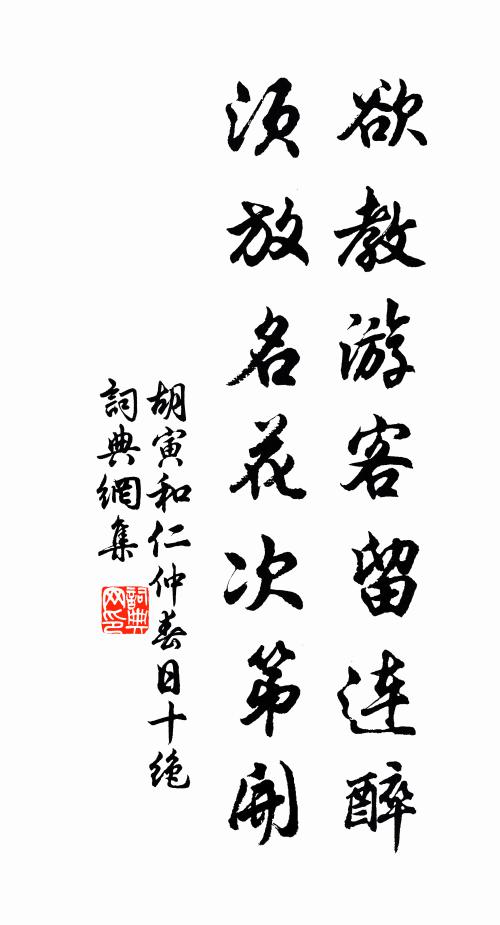 欲教游客留連醉
須放名花次第開
胡寅和仁仲春日十絶
詞典網集
詞典网印